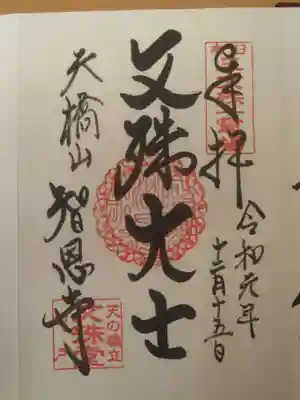 奉拝
令和元年
十二月十五日
文殊大士
天橋山
智恩寺
天の橋立
文珠堂